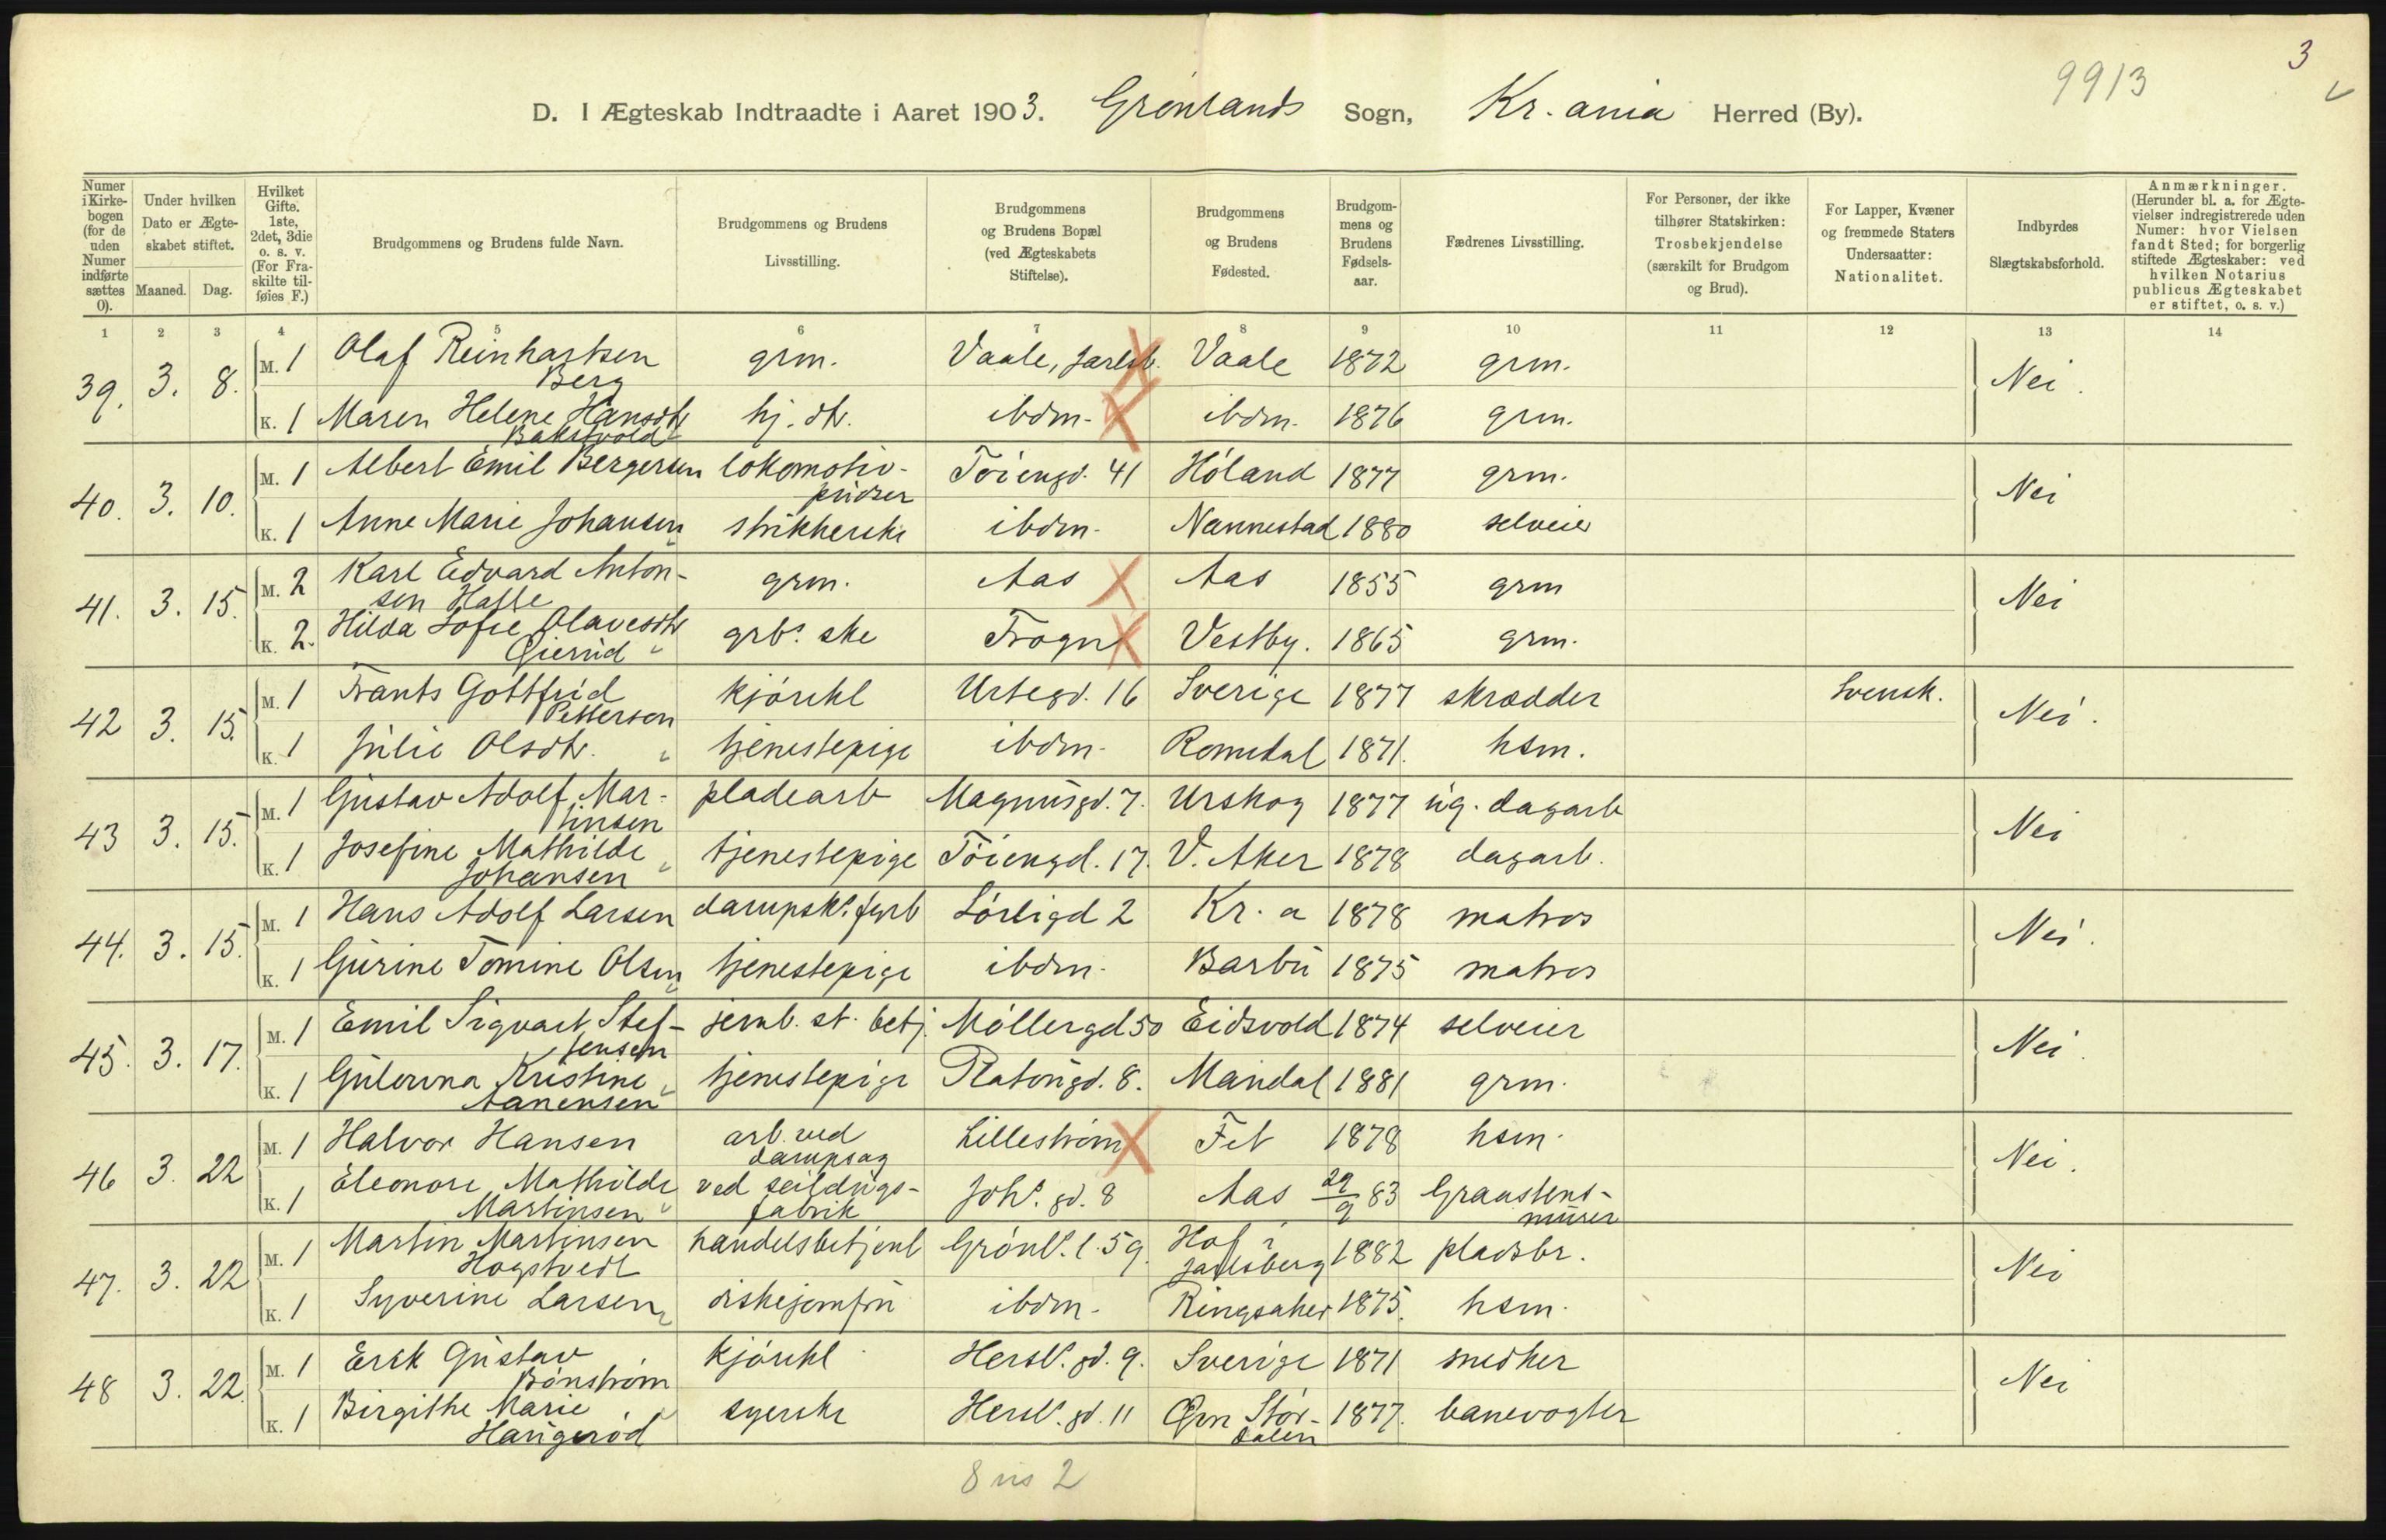 3
9913
D. I Ægteskab Indtraadte i Aaret 1903. Grønlands Sogn, Kr.ania Herred (By).
Numer i Kirkebogen (for de uden Numer indførte sættes 0).
Under hvilken Dato er Ægteskabet stiftet.
Maaned. Dag.
Hvilket Gifte. 1ste, 2det, 3die o. s. v. (For Fraskilte tilføies F.)
Brudgommens og Brudens fulde Navn.
Brudgommens og Brudens Livsstilling.
Brudgommens og Brudens Bopæl (ved Ægteskabets Stiftelse).
Brudgommens og Brudens Fødested.
Brudgommens og Brudens Fødselsaar.
Fædrenes Livsstilling.
For Personer, der ikke tilhører Statskirken: Trosbekjendelse (særskilt for Brudgom og Brud).
For Lapper, Kvæner og fremmede Staters Undersaatter: Nationalitet.
Indbyrdes Slægtskabsforhold.
Anmærkninger. (Herunder bl. a. for Ægtevielser indregistrerede uden Numer: hvor Vielsen fandt Sted; for borgerlig stiftede Ægteskaber: ved hvilken Notarius publicus Ægteskabet er stiftet, o. s. v.)
1 2 3 4 5 6 7 8 9 10 11 12 13 14
39. 3. 8. M. 1 Olaf Reinhartsen Berg grm. Vaale, Jarlsb. Vaale 1872 grm. Nei.
K. 1 Maren Helene Hansdtr Bakstvold hj. dtr. ibdm. ibdm. 1876 grm.
40. 3. 10. M. 1 Albert Emil Bergersen lokomotivpudser Tøiengd. 41 Høland 1877 grm. Nei
K. 1 Anne Marie Johansen strikkerske ibdm. Nannestad 1880 selveier
41. 3. 15. M. 2 Karl Edvard Antonsen Halle grm. Aas Aas 1855 grm Nei
K. 2. Hilda Sofie Olavesdtr Gierud grbs. ske Frogn Vestby. 1865 grm.
42 3. 15. M. 1 Frants Gottfrid Pettersen kjørekl Urtegd. 16 Sverige 1877 skrædder Svensk. Nei.
K. 1 Julie Olsdtr. tjenestepige ibdm. Romedal 1871. hsm.
43 3. 15. M. 1 Gustav Adolf Martinsen pladearb Magnusgd. 7. Urskog 1877 ug. dagarb Nei
K. 1 Josefine Mathilde Johansen tjenestepige Tøiengd. 17. V. Aker 1878 dagarb.
44. 3. 15. M. 1 Hans Adolf Larsen dampsk. fyrb Sørligd 2 Kr.a 1878 matros Nei.
K. 1 Gurine Tomine Olsen tjenestepige ibdm. Barbu 1875 matros
45. 3. 17. M. 1 Emil Sigvart Steffensen jernb. st. betj. Møllergd 50 Eidsvold 1874 selveier Nei.
K. 1 Gulowna Kristine Aanensen tjenestepige Platougd. 8. Mandal 1881 grm.
46 3. 22 M. 1 Halvor Hansen arb. ved dampsag Lillestrøm Fet 1878 hsm. Nei.
K. 1 Eleonore Mathilde Martinsen ved seildugsfabrik Johs. gd. 8 Aas 29/9 83 Graastensmurer
47. 3. 22 M. 1 Martin Martinsen Hogstvedt handelsbetjent Grønl. l. 59. Hof i Jarlsberg 1882 pladsbr. Nei
K. 1 Syverine Larsen diskejomfru ibdm. Ringsaker 1875. hsm.
48 3. 22. M. 1 Erik Gustav Bønstrøm kjørekl Hersl. gd. 9. Sverige 1871 snedker Nei
K. 1 Birgithe Marie Haugerød syerske Hersl. gd. 11 Øvn Størdalen 1877. banevogter